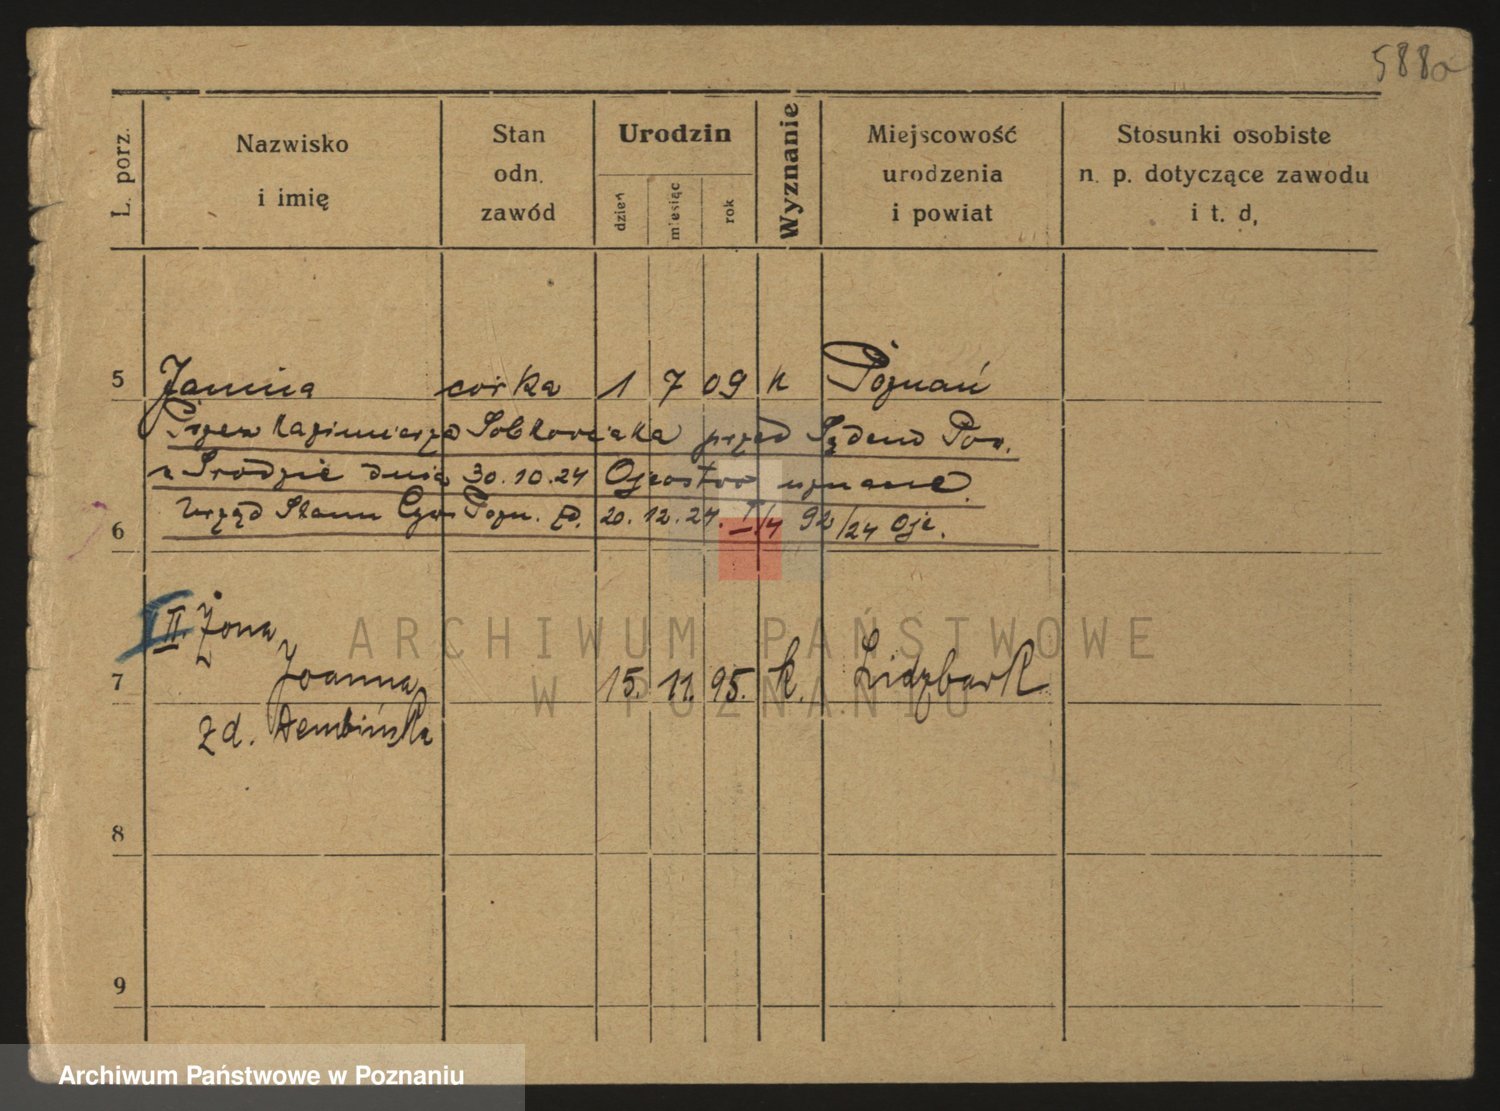 588a
L. porz.
Nazwisko
i imię
Stan
odn.
zawód
Urodzin
dzień
miesiąc
rok
Wyznanie
Miejscowość
urodzenia
i powiat
Stosunki osobiste
n. p. dotyczące zawodu
i t. d,
5 Janina córka 1 7 09 k Poznań
Przez Kazimierza Sobkowiaka przed Sądem Pow.
w Srodzie dnia 30.10.24 Ojcostwo uznane.
6 Urząd Stanu Cyw. Pozn. 20.12.24. I/4 92/24 Ojc.
II. Żona
7 Joanna 15. 11. 95. k. Lidzbark
zd. Dembińska
8
9
ARCHIWUM PAŃSTWOWE
W POZNANIU
Archiwum Państwowe w Poznaniu